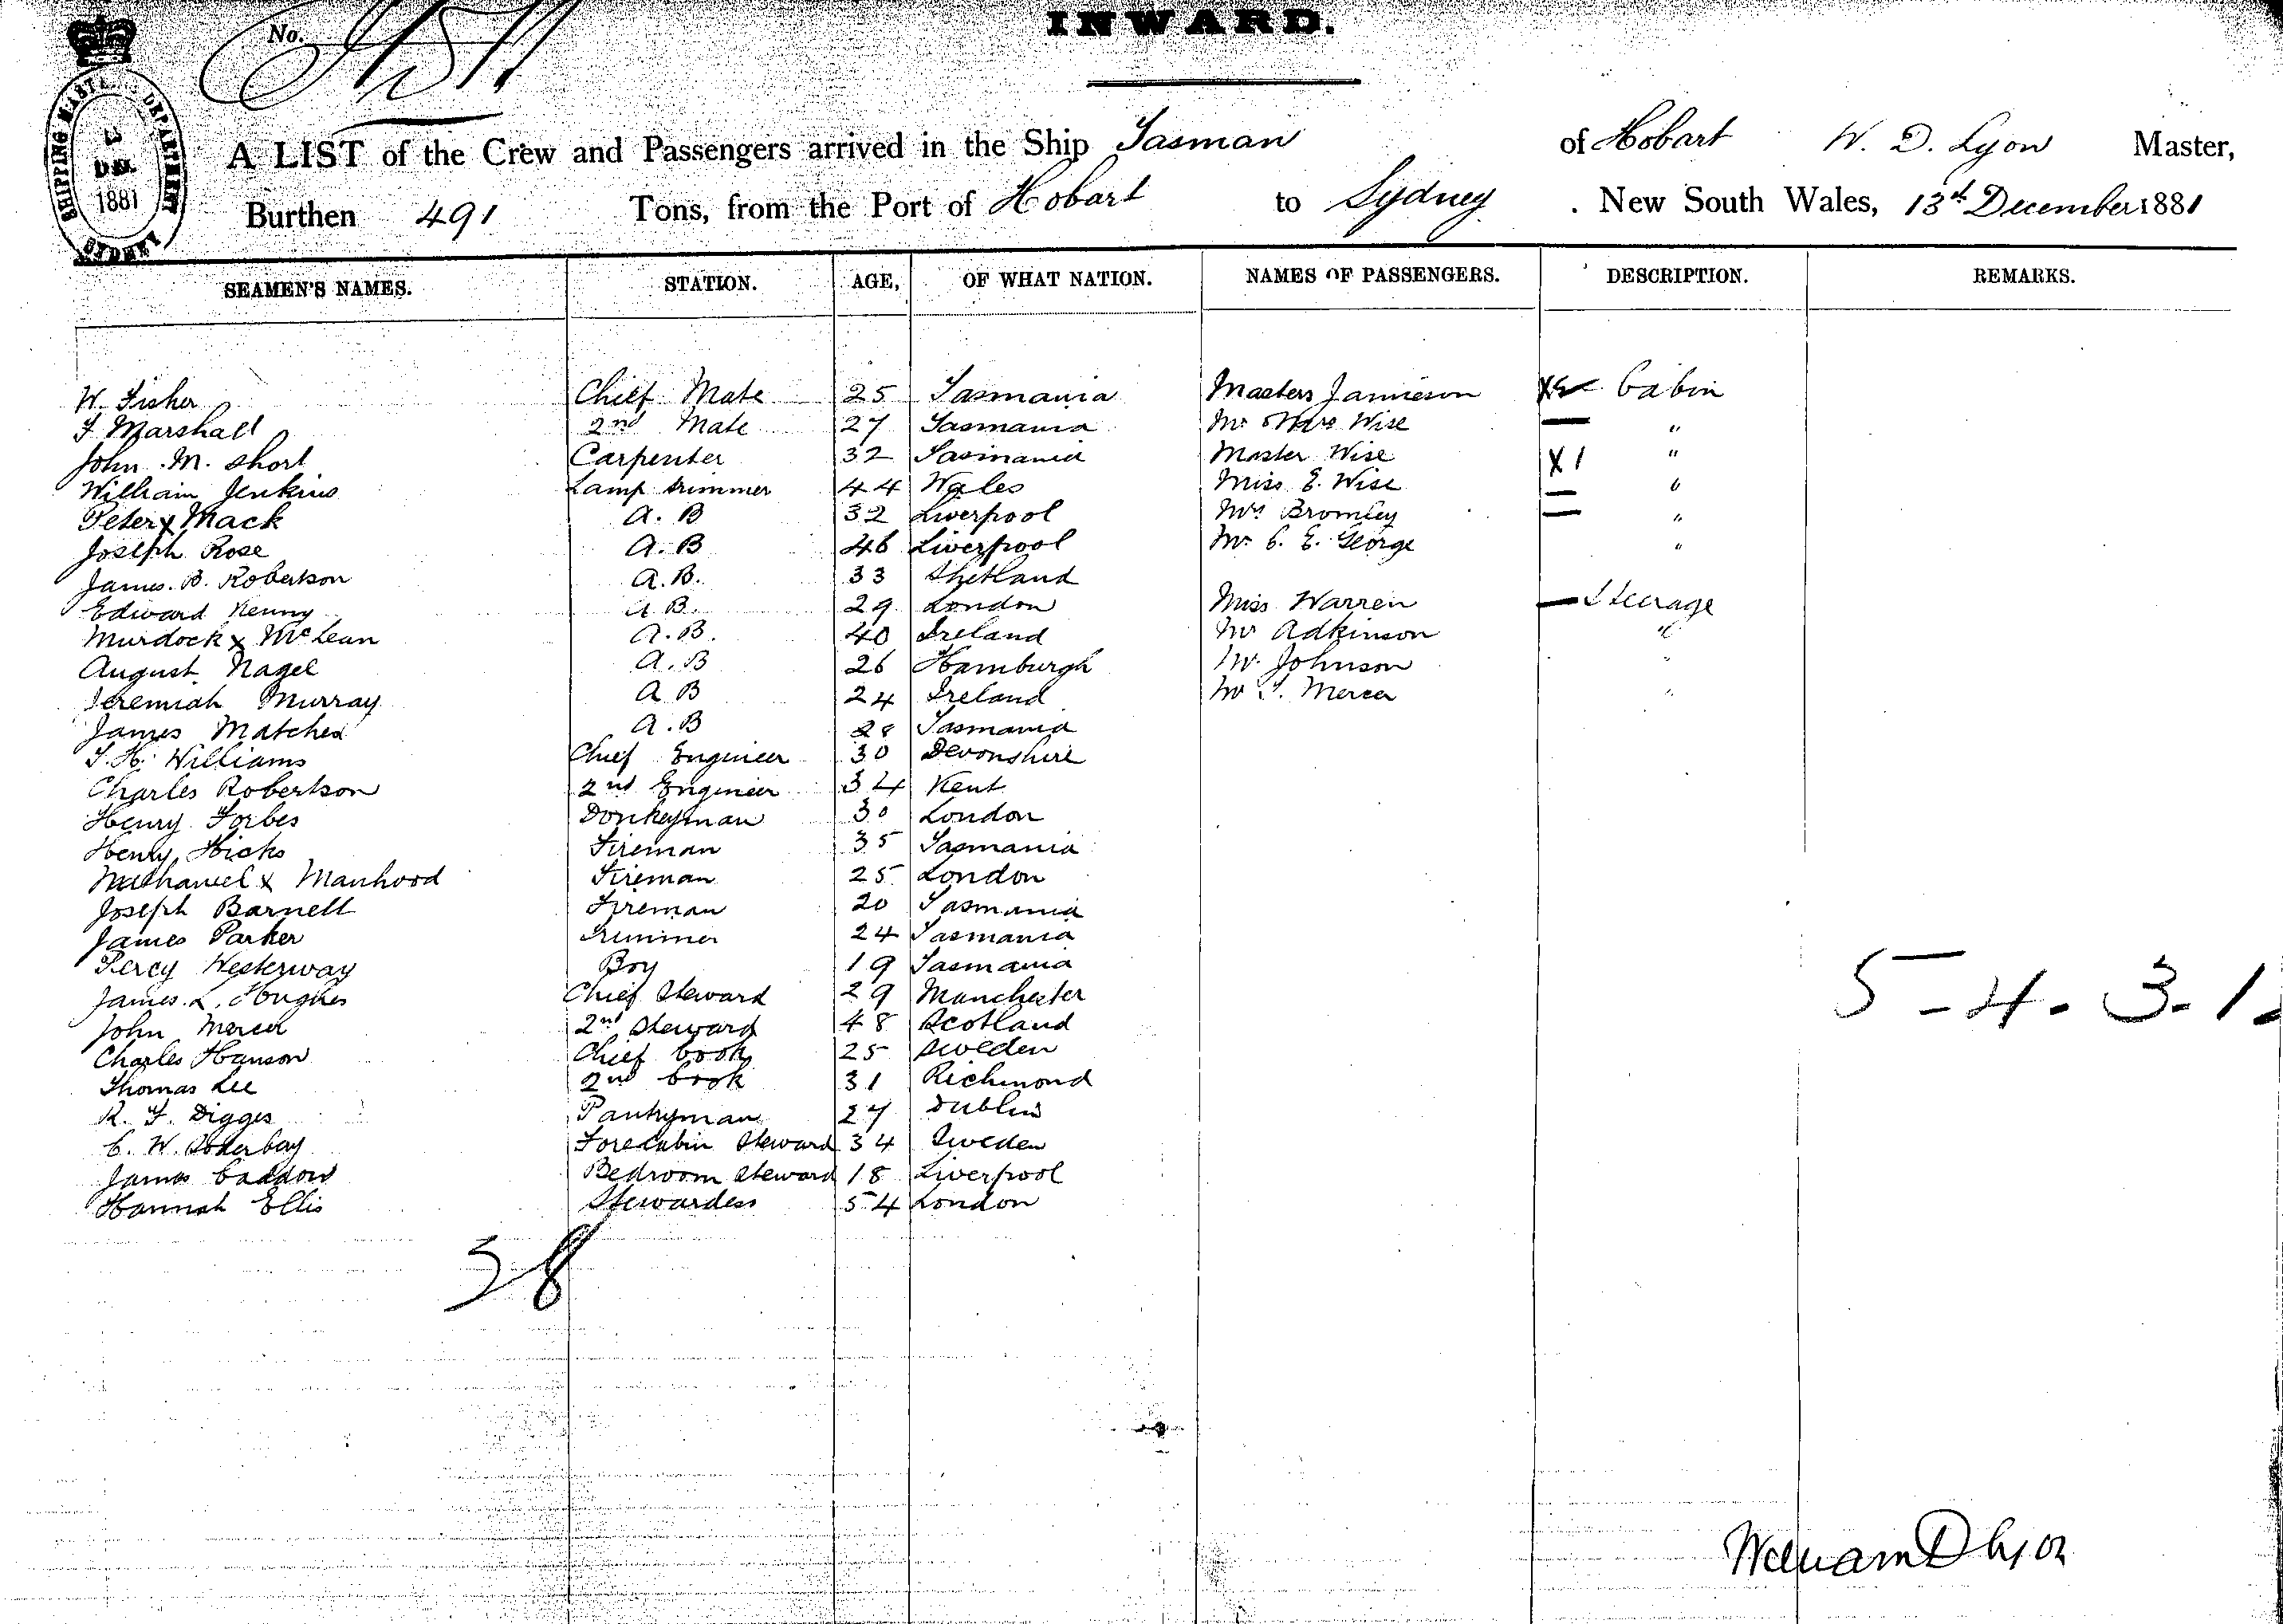 INWARD.
No.
SHIPPING MASTER DEPARTMENT
1881
SYDNEY
A LIST of the Crew and Passengers arrived in the Ship Tasman of Hobart W. D. Lyon Master,
Burthen 491 Tons, from the Port of Hobart to Sydney. New South Wales, 13th December 1881
SEAMEN'S NAMES. STATION. AGE, OF WHAT NATION. NAMES OF PASSENGERS. DESCRIPTION. REMARKS.
W. Fisher Chief Mate 25 Tasmania Masters Jamieson Cabin
F Marshall 2nd Mate 27 Tasmania Mr Mrs Wise "
John . M. Short Carpenter 32 Tasmania Master Wise X 1 "
William Jenkins Lamp trimmer 44 Wales Miss E. Wise "
Peter x Mack A. B 32 Liverpool Mrs Bromley "
Joseph Rose A. B 46 Liverpool Mr C. E. George "
James. B. Robertson A.B. 33 Shetland
Edward Kenny A B. 29 London Miss Warren Steerage
Murdock x McLean A.B. 40 Ireland Mr Adkinson "
August Nagel A.B 26 Hamburgh Mr. Johnson "
Jeremiah Murray A B 24 Ireland Mr Mercer "
James Matches A.B 28 Tasmania
T. H. Williams Chief Engineer 30 Devonshire
Charles Robertson 2nd Engineer 34 Kent
Henry Forbes Donkeyman 30 London
Henry Hicks Fireman 35 Tasmania
Nathaniel x Manhood Fireman 25 London
Joseph Barnett Fireman 20 Tasmania
James Parker Trimmer 24 Tasmania
Percy Westerway Boy 19 Tasmania
James. L. Hughes Chief Steward 29 Manchester
John Mercer 2nd Steward 48 Scotland
5-4. 3-1.
Charles Hanson Chief Cook 25 Sweden
Thomas Lee 2nd Cook 31 Richmond
R. F. Digges Pantryman 27 Dublin
C. W. Forecabin Steward 34 Sweden
James Bedroom Steward 18 Liverpool
Hannah Ellis Stewardess 54 London
William D Lyon